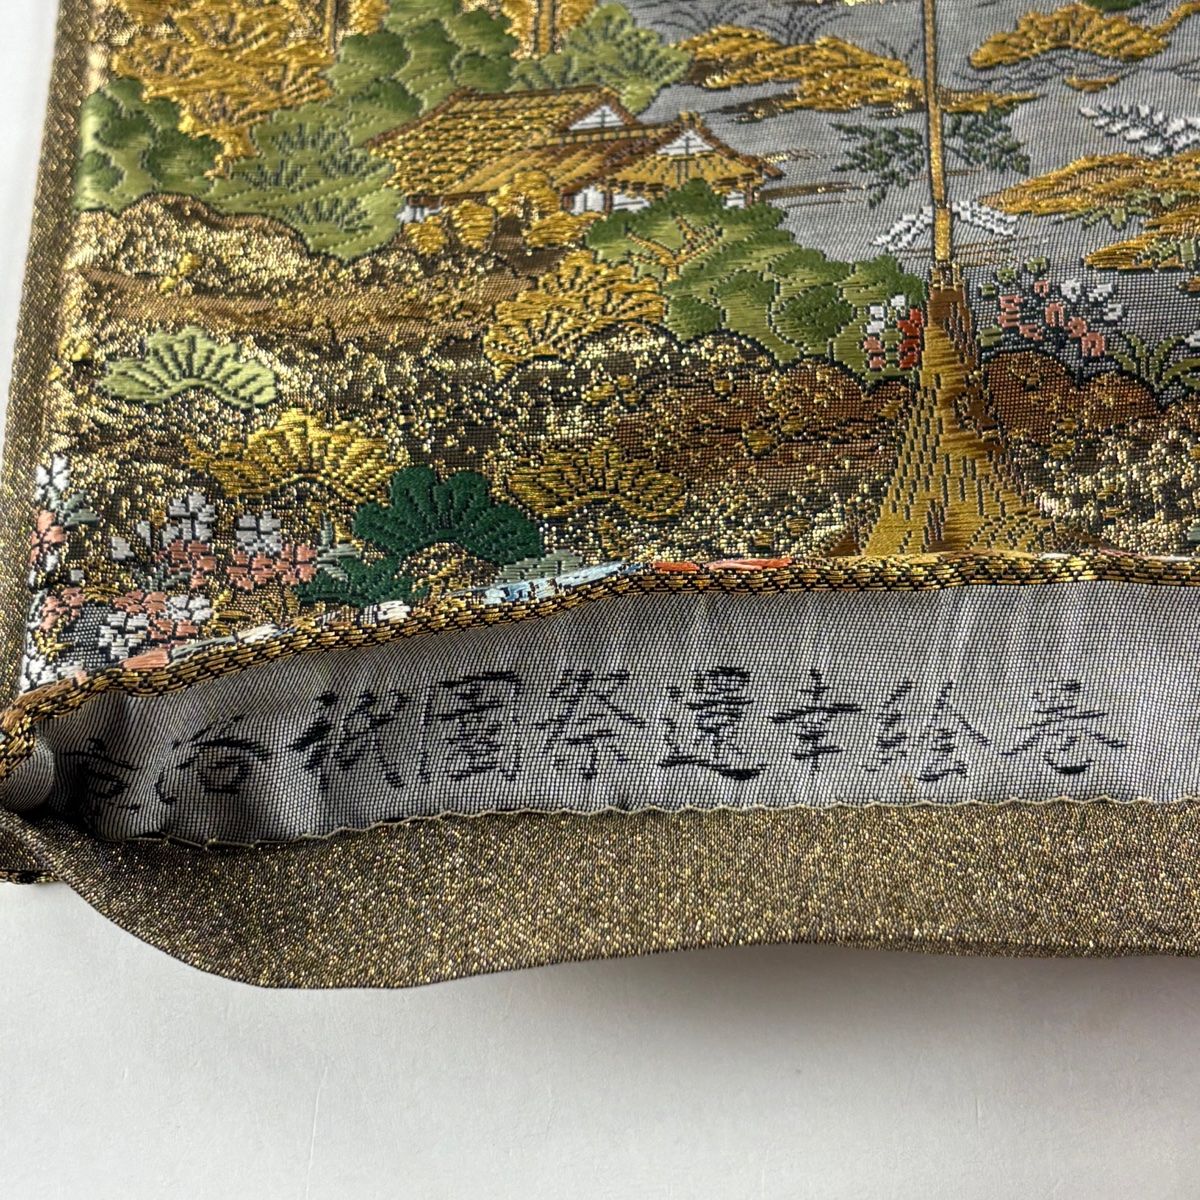 祇園祭還幸絵巻